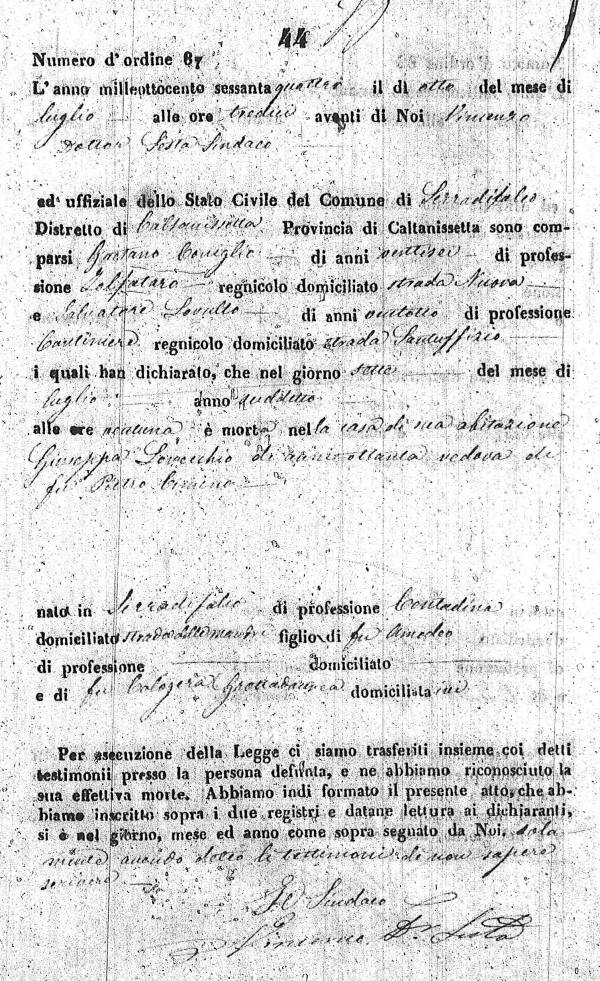 44
Numero d'ordine 87
L'anno milleottocento sessanta quattro il dì otto del mese di
luglio alle ore tredici avanti di Noi Vincenzo
Dottor Sindaco
ed uffiziale dello Stato Civile del Comune di Serradifalco
Distretto di Caltanissetta Provincia di Caltanissetta sono com-
parsi Gaetano Coniglio di anni ventisei di profes-
sione Zolfataro regnicolo domiciliato strada Nuova
e Salvatore Lovullo di anni ventotto di professione
regnicolo domiciliato strada
i quali han dichiarato, che nel giorno sette del mese di
luglio anno suddetto
alle ore ventuna è morta nella casa di sua abitazione
Giuseppa Lovecchio di anni ottanta vedova di
fu Pietro Cimino
nato in Serradifalco di professione Contadina
domiciliato strada delle mandre figlio di fu Amodeo
di professione domiciliato
e di fu Calogera domiciliata ivi
Per esecuzione della Legge ci siamo trasferiti insieme coi detti
testimonii presso la persona defunta, e ne abbiamo riconosciuto la
sua effettiva morte. Abbiamo indi formato il presente atto, che ab-
biamo inscritto sopra i due registri e datane lettura ai dichiaranti,
si è nel giorno, mese ed anno come sopra segnato da Noi, sola
mente avendo detto li testimoni di non sapere
scrivere
Il Sindaco
Vincenzo Dr